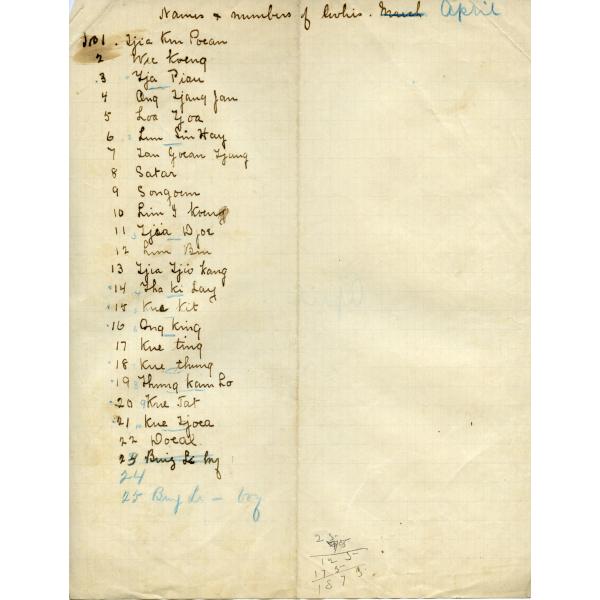 Names + numbers of Coolies. March April
No 1. Tjia Km Poean
2 Wee Koeng
3 Tja Pian
4 Ong Tjang Jan
5 Loa Tjoa
6 Lim Sin Hay
7 Tan Goean Tjang
8 Satar
9 Songoem
10 Lim I Koeng
11 Tjia Djoe
12 Lim Bin
13 Tjia Tjio Kang
14 Tha Ki Lay
15 Kue Kit
16 Ong King
17 Kue ting
18 Kue thung
19 Thung Kam Lo
20 Kue Tat
21 Kue Tjoea
22 Doeal
23 boy
24
25 boy
125
175
1875